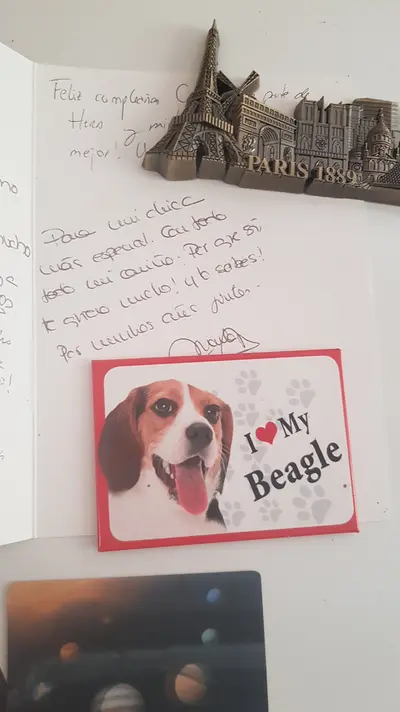 Feliz cumpleaños C parte de
Hugo y mi
mejor!
PARIS 1889
Para mi chica
más especial. Con todo
todo mi cariño. Por que sí
te quiero mucho! y lo sabes!
Por muchos años juntos.
I ❤ My
Beagle